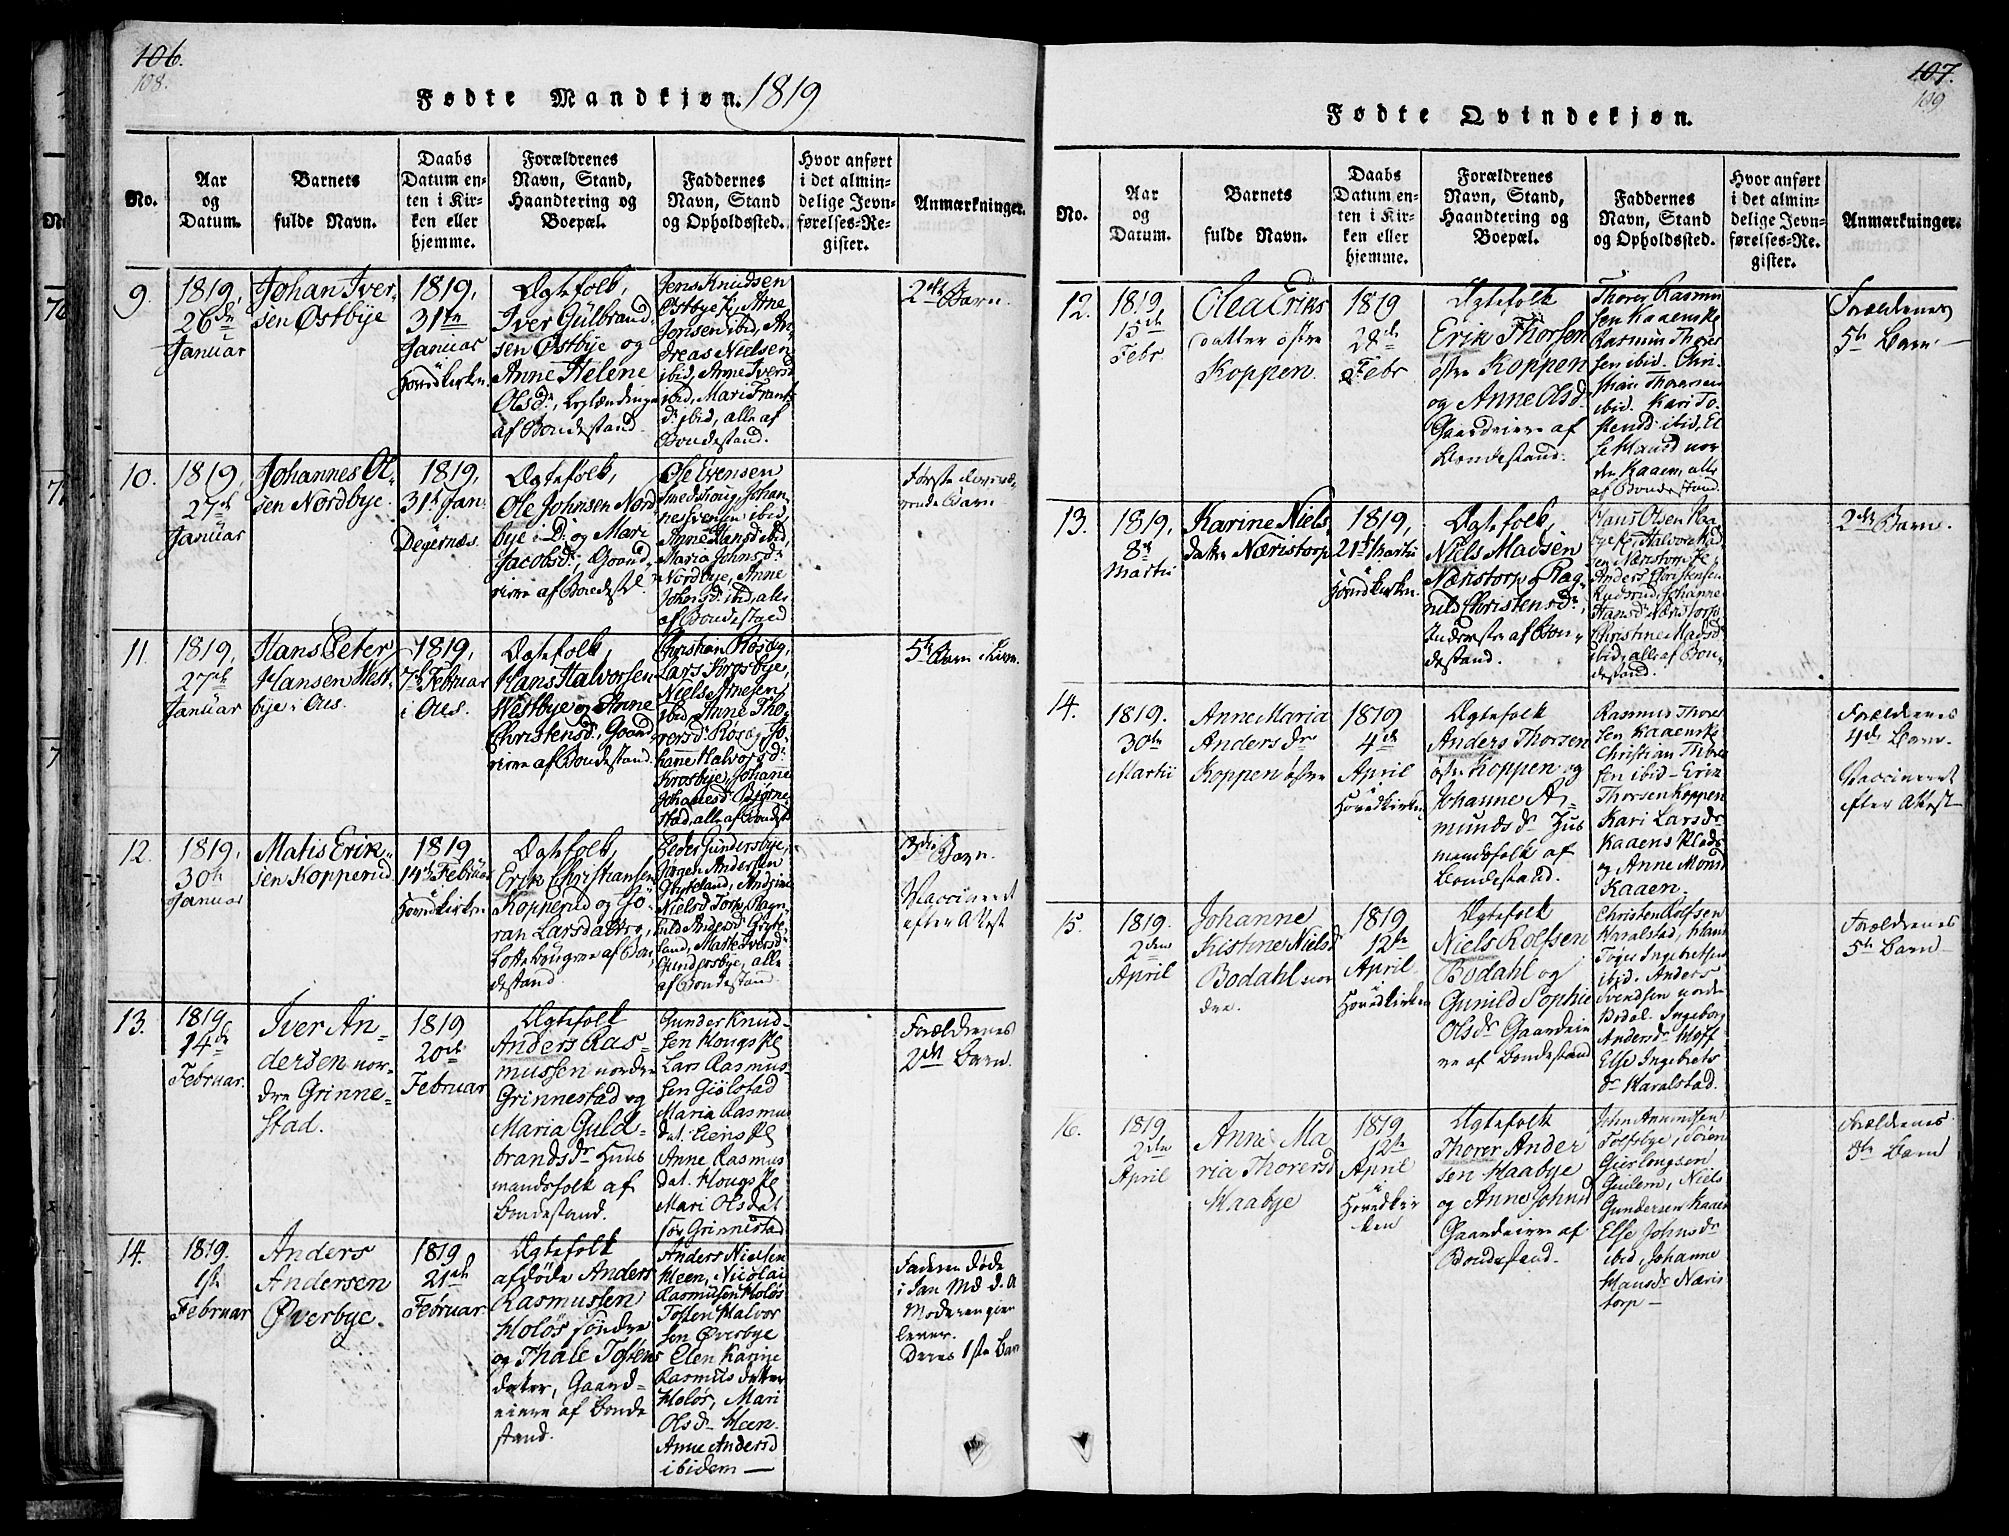 106.
108.
Fødte Mandkjøn. 1819
No.
Aar
og
Datum.
Barnets
fulde Navn.
Daabs
Datum en-
ten i Kir-
ken eller
hjemme.
Forældrenes
Navn, Stand,
Haandtering og
Boepæl.
Faddernes
Navn, Stand
og Opholdssted.
Hvor anført
i det almin-
delige Jevn-
førelses-Re-
gister.
Anmærkninger.
9.
1819,
26de
Januar
Johan Iver-
sen Østbye
1819,
31te
Januar
Hovedkirken
Ægtefolk,
Iver Gulbrand-
sen Østbye og
Anne Helene
Olsdr,
af Bondestand.
Jens Knudsen
Østbye, Anne
Jonsen ibid, An-
dreas Nielsen
ibid, Anne Iversd
ibid, Mari Frants
dr ibid, alle af
Bondestand.
2det Barn.
10.
1819,
27de
Januar
Johannes Ol-
sen Nordbye
1819,
31te Jan.
Degernæs.
Ægtefolk,
Ole Johnsen Nord
bye i D: og Mari
Jacobsdr, Gaard-
eiere af Bondest.
Ole Evensen
Johan-
nes Svensen ibid,
Anne Hansd ibid,
Maria Johnsdr
Nordbye, Anne
Johnsdr ibid, alle
af Bondestand
Første
Barn
11.
1819,
27de
Januar
Hans Peter
Hansen West-
bye i Øies.
1819,
7de Februar
i Øies.
Ægtefolk,
Hans Halvorsen
Westbye og Anne
Christensdr, Gaard
eiere af Bondestand.
Christian Røsæg,
Lars Krosbye,
Niels Arnesen
ibid, Anne Tho-
rersdr Røsæg, Jo-
hanne Halvorsdr
Krosbye, Johane
Johanesdr Bjørne-
stad, alle af Bondest
5te Barn
12.
1819,
30te
Januar
Matis Erik-
sen Kopperud
1819
14de Februar
Hovedkirken
Ægtefolk,
Erik Christiansen
Kopperud og Jö-
ran Larsdatter,
af Bon-
destand
Peder Gundersbye,
Jørgen Andersen
Grykeland, Andrine
Nielsd Torp, Ragn-
hild Andersdr Gryke-
land, Marte Iversdr
Gundersbye, alle
af Bondestand.
3die Barn.
Vaccineret
efter Attest
13.
1819.
14de
Februar.
Iver An-
dersen nor-
dre Grinne-
stad.
1819
20de
Februar
Ægtefolk
Anders Ras-
mussen nordre
Grinnestad og
Maria Guld-
brandsdr Huus
mandsfolk af
Bondestand.
Gunder Knud-
sen Hougs
Lars Rasmus-
sen Giölstad
Maria Rasmus
dat.
Anne Rasmus
dat. Hougs
Mari Olsdat.
Grinnestad
Forældrenes
2det Barn.
14.
1819.
1ste
Februar
Anders
Andersen
Øverbye.
1819
21de
Februar.
Ægtefolk
afdöde Anders
Rasmussen
Holös söndre
og Thale Tostens
datter, Gaard-
eiere af Bonde
stand.
Anders Nielsen
Heen, Nicolai
Rasmusen Holös
Tosten Halvor
sen Øverbye
Elen Karine
Rasmus datter
Holös, Mari
Olsdr Heen
Anne Andersd
ibidem —
Faderen døde
i Jan Md d. A
Moderen
lever.
Deres 1ste Barn
107.
109
Fødte Qvindekjøn.
No.
Aar
og
Datum.
Barnets
fulde Navn.
Daabs
Datum en-
ten i Kir-
ken eller
hjemme.
Forældrenes
Navn, Stand,
Haandtering og
Boepæl.
Faddernes
Navn, Stand
og Opholdssted.
Hvor anført
i det almin-
delige Jevn-
førelses-Re-
gister.
Anmærkninger.
12.
1819
Febr
Olea Eriks
datter östre
Koppen.
1819
28de
Febr
Ægtefolk
Erik Thorsen
östre Koppen
og Anne Olsd
Gaardeiere af
Bondestand.
Thorer Rasmus
sen Kaaen
Rasmus Thorer
sen ibid. Chri-
stian Thorersen
ibid. Kari To-
stensd ibid, El
se nor
dre Kaaen, alle
af Bondestand.
Forældrenes
5te Barn.
13.
1819,
8de
Martii
Karine Niels
datter Næristorp
1819,
21de Martii
i
Hovedkirken.
Ægtefolk,
Niels Madsen
Næristorp, Rag-
nild Christensdr,
Inderster af Bon-
destand.
Hans Olsen Haa-
bye, Halvor Mad
sen Næristorp,
Anders Christensen
Rudsrud, Johanne
Hansd Næristorp,
Christine Madsdr
ibid, alle af Bon-
destand.
2det Barn.
14.
1819.
30te
Martii
Anne Maria
Andersdr
Koppen östre
1819
4de
April
i
Hovedkirken
Ægtefolk
Anders Thorsen
östre Koppen og
Johanne A-
mundsdr Huus
mandsfolk af
Bondestand.
Rasmus Thorer
sen Kaaen
Christian Thorer
sen ibid – Erik
Thorsen Koppen
Kari Larsdr
Kaaens Plads
og Anne Monsd
Kaaen.
Forældrenes
4de Barn.
Vaccineret
efter Attest
15.
1819.
2den
April
Johanne
Kistine Nielsd
Bodahl nor
dre.
1819
12te
April.
i
Hovedkirken
Ægtefolk
Niels Rolfsen
Bodahl og
Gunild Sophie
Olsdr Gaardeie
re af Bondestand
Christen Rolfsen
Haralstad,
Toger Ingebretsen
ibid. Anders
Svendsen nordre
Bodal. Ingeborg
Andersdr Moff
Else Ingebrets
dr Haralstad.
Forældrenes
5te Barn
16.
1819
2den
April
Anne Ma
ria Thorersd
Haabye
1819.
12te
April
i
Hovedkir
ken
Ægtefolk
Thorer Ander
sen Haabye
og Anne Johnsd
Gaardeiere af
Bondestand.
John Amundsen
Tolfsbye, Sören
Gierlougsen
Gulem, Niels
Gundersen Kaaen
Else Johnsdr
ibid, Johanne
Hansdr Næris
torp —
Forældrenes
Barn